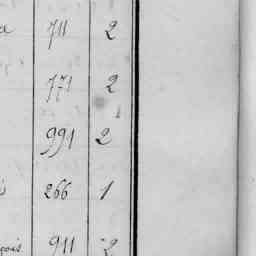 a 711 2
771 2
991 2
266 1
911 2